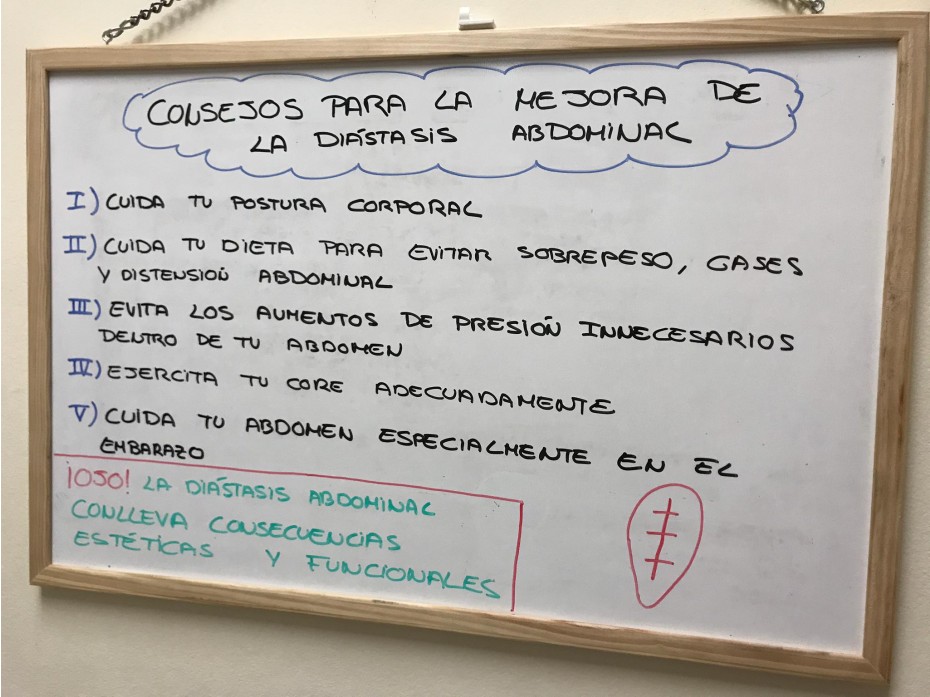 CONSEJOS PARA LA MEJORA DE
LA DIÁSTASIS ABDOMINAL
I) CUIDA TU POSTURA CORPORAL
II) CUIDA TU DIETA PARA EVITAR SOBREPESO, GASES
Y DISTENSIÓN ABDOMINAL
III) EVITA LOS AUMENTOS DE PRESIÓN INNECESARIOS
DENTRO DE TU ABDOMEN
IV) EJERCITA TU CORE ADECUADAMENTE
V) CUIDA TU ABDOMEN ESPECIALMENTE EN EL
EMBARAZO
¡OJO! LA DIÁSTASIS ABDOMINAL
CONLLEVA CONSECUENCIAS
ESTÉTICAS Y FUNCIONALES